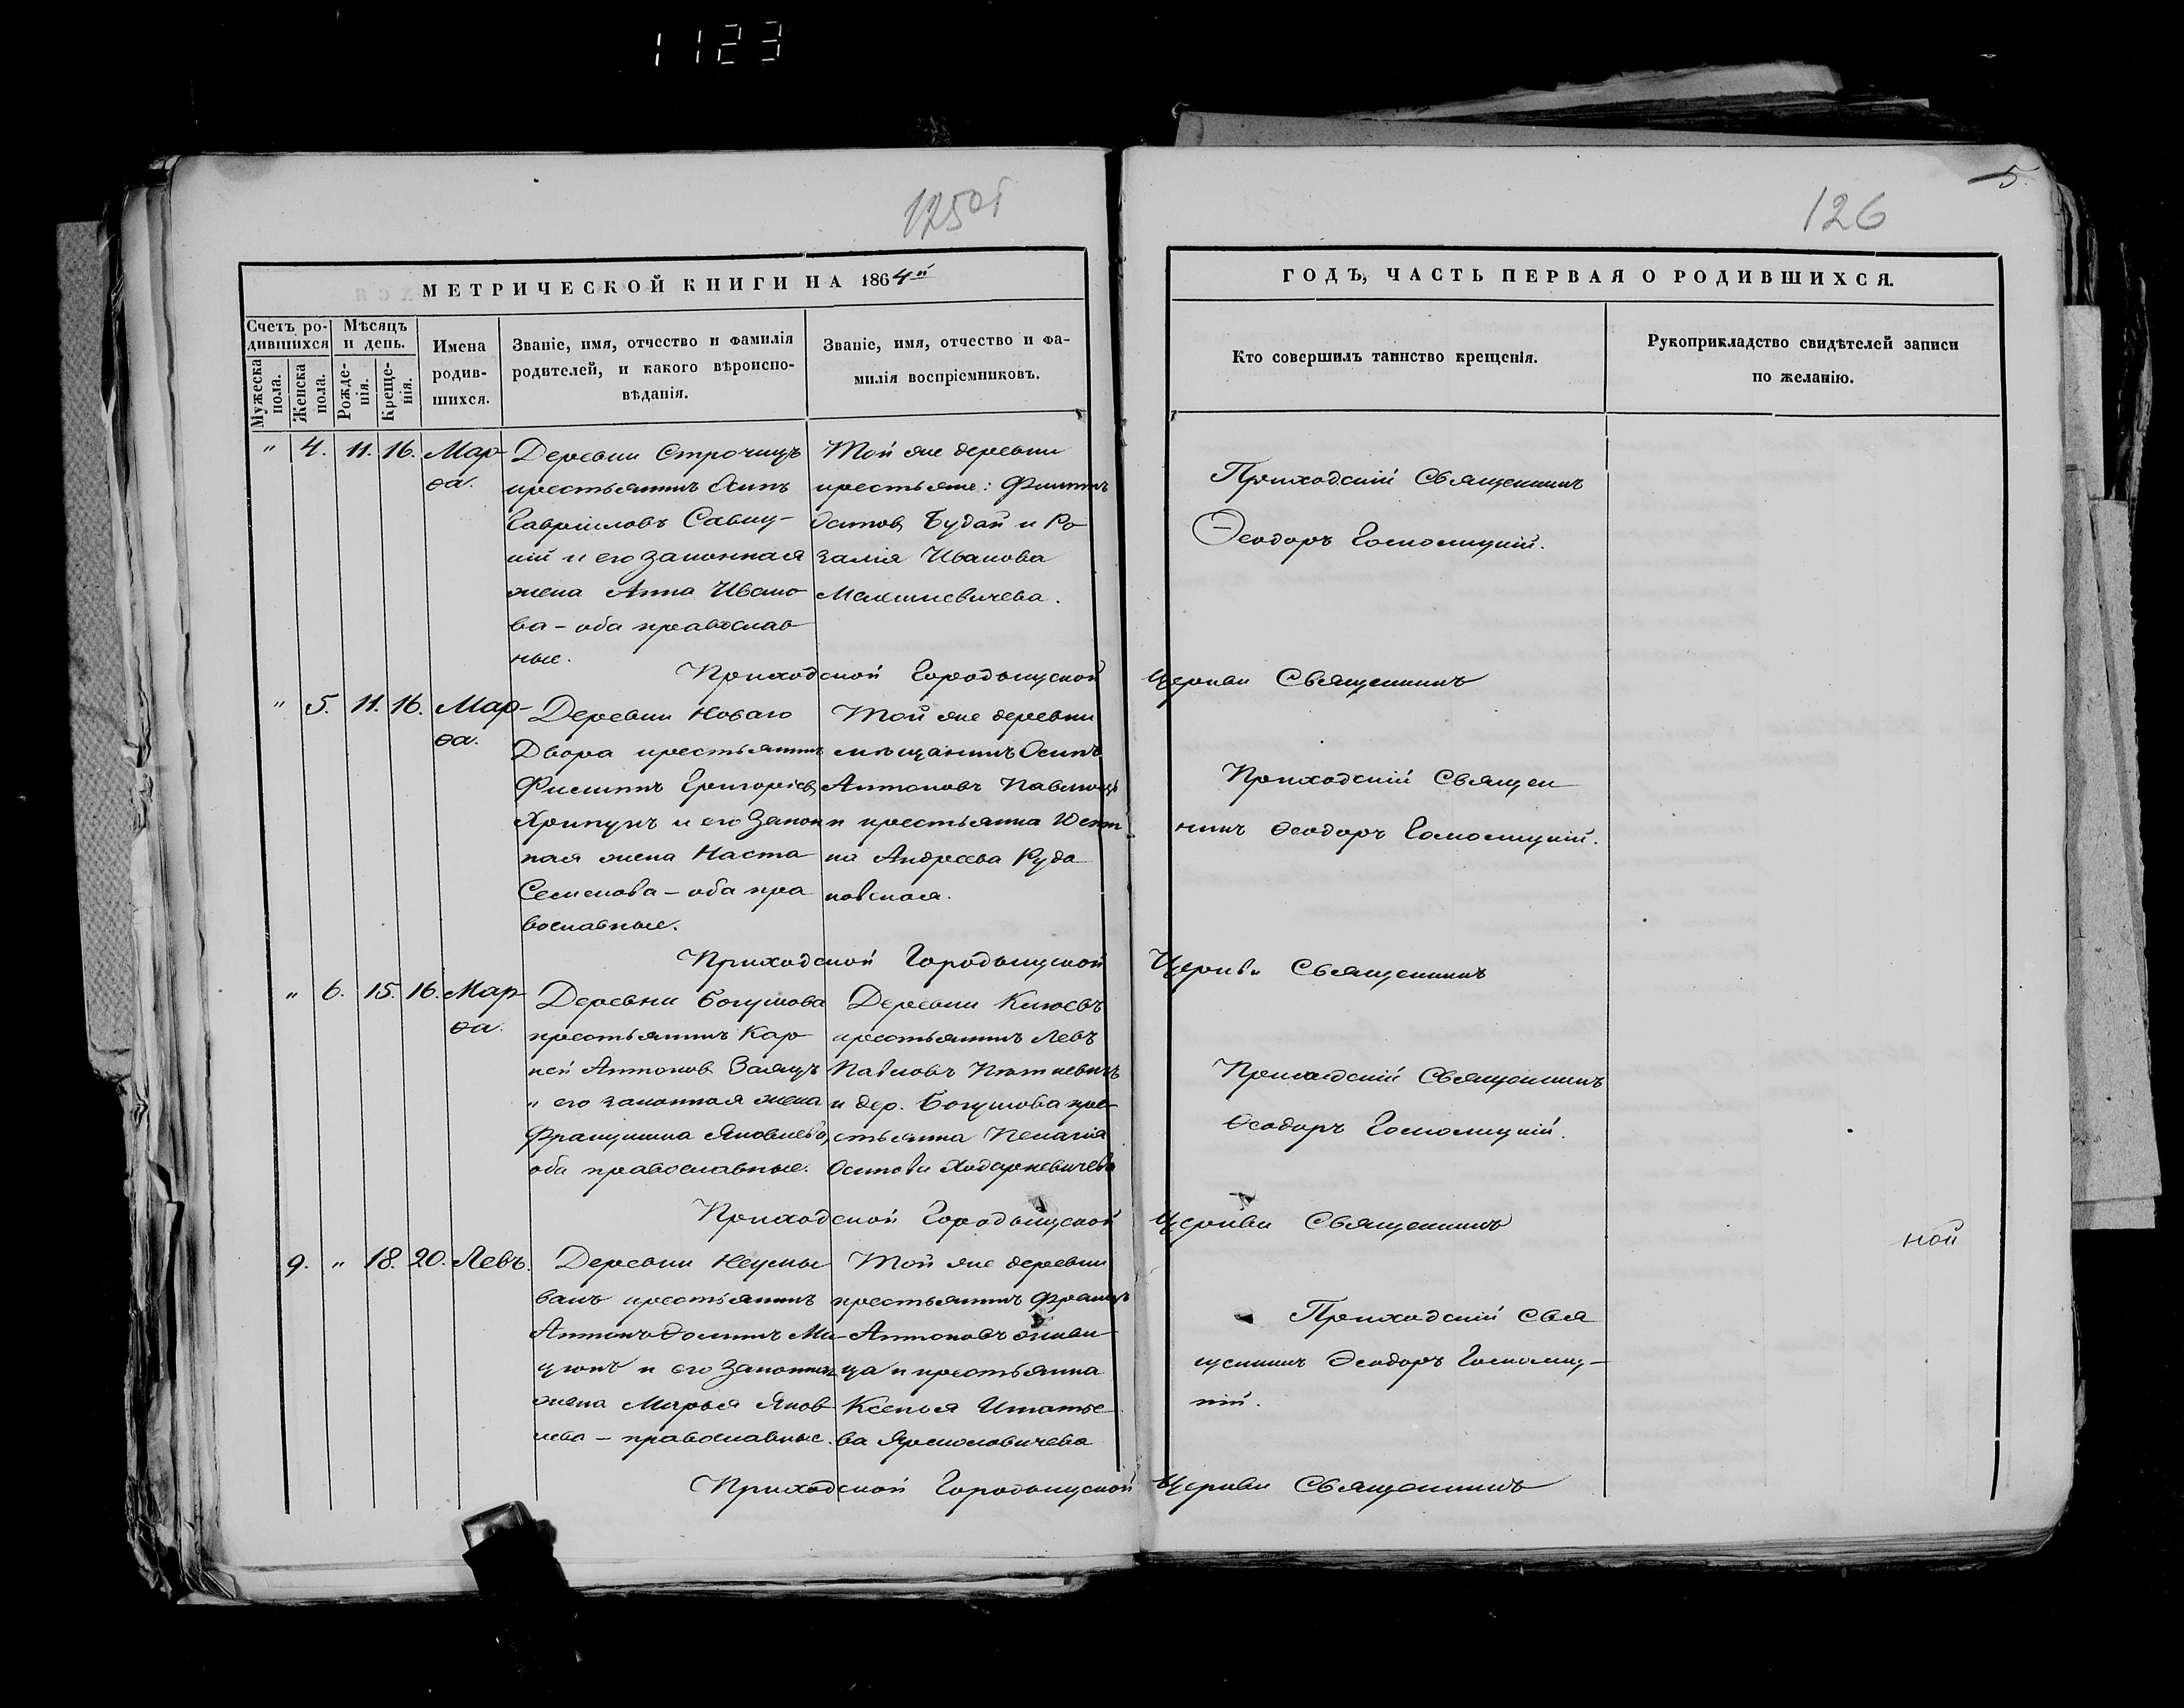 1123
125об
126
5.
МЕТРИЧЕСКОЙ КНИГИ НА 1864й
ГОДЪ, ЧАСТЬ ПЕРВАЯ О РОДИВШИХСЯ.
Счетъ ро-
дившихся
Мѣсяцъ
и день.
Мужеска
пола.
Женска
пола.
Рожде-
нія.
Креще-
нія.
Имена
родив-
шихся.
Званіе, имя, отчество и фамилія
родителей, и какого вѣроиспо-
вѣданія.
Званіе, имя, отчество и фа-
милія воспріемниковъ.
Кто совершилъ таинство крещенія.
Рукоприкладство свидѣтелей записи
по желанію.
" 4. 11. 16. Мар-
ѳа.
Деревни Строчицъ
крестьянинъ Осипъ
Гавріиловъ Савиц-
кій и его законная
жена Анна Ивано
ва - оба православ
ные.
Той же деревни
крестьяне: Филиппъ
Осиповъ Будай и Ро
залія Иванова
Малешкевичева.
Приходскій Священникъ
Ѳеодоръ Гомолицкій.
Приходской Городыцской Церкви Священникъ
" 5. 11. 16. Мар-
ѳа.
Деревни Новаго
Двора крестьянинъ
Филиппъ Григоріевъ
Хрипунъ и его закон
ная жена Наста
Семенова - оба пра
вославные.
Той же деревни
мѣщанинъ Осипъ
Антоновъ
и крестьянка Юсти
на Андреева Руда
ковская.
Приходскій Священ
никъ Ѳеодоръ Гомолицкій.
Приходской Городыцской Церкви Священникъ
" 6. 15. 16. Мар-
ѳа.
Деревни Богушова
крестьянинъ Кар
ней Антоновъ Заяцъ
и его законная жена
Францишка Яковлева
оба православные.
Деревни Клюевъ
крестьянинъ Левъ
Павловъ
и дер. Богушова кре-
стьянка Пелагія
Осипова Ходоркевичева
Приходскій Священникъ
Ѳеодоръ Гомолицкій.
Приходской Городыцской Церкви Священникъ
ной
9. " 18. 20. Левъ.
Деревни
крестьянинъ
Антонъ Доминик Ми-
цюкъ и его законная
жена Марья Яков
лева - православные.
Той же деревни
крестьянинъ Францъ
Антоновъ
ца и крестьянка
Ксенья Игнатье
ва Ярмоловичева
Приходскій Свя
щенникъ Ѳеодоръ Гомолиц-
кій.
Приходской Городыцской Церкви Священникъ